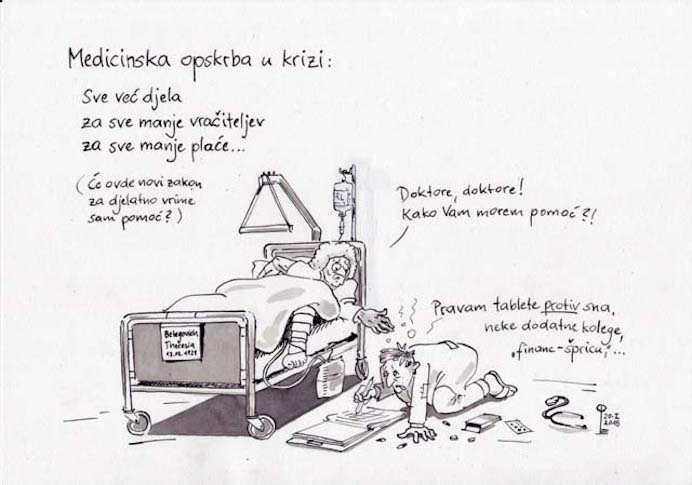 Medicinska opskrba u krizi:
Sve već djela
za sve manje vračiteljev
za sve manje plaće...
(Će ovde novi zakon
za djelatno vrime
sam pomoć?)
Doktore, doktore!
Kako Vam morem pomoć?!
Pravam tablete protiv sna,
neke dodatne kolege,
„financ-špricu“,...
Belegovich
Thečesia
13.12.1921
20-I
2015